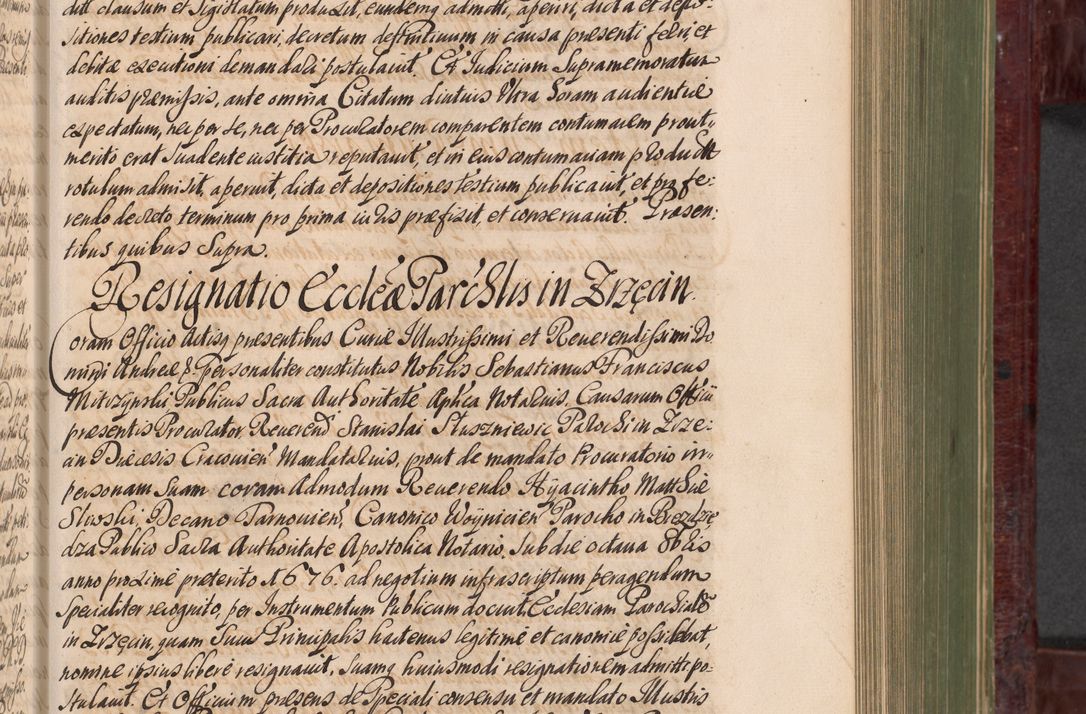 ditt clausum et sigillatum produxit, eundemq admitti, aperiri, dicta et depo-
sitiones testium publicari, decretum deffinitiuum in causa præsenti ferri, et
debitæ executioni demandari postulauit. Et Judicium Supramemoratum
auditis præmissis, ante omnia Citatum diutius Vltra horam audientiæ
expectatum, nec per se, nec per Procuratorem comparentem contumacem prout
merito erat suadente iustitia reputauit, et in eius contumaciam productũ
rotulum admisit, aperuit, dicta et depositiones testium publicauit, et pro fe:
rendo decreto terminum pro prima iuris præfixit, et conseruauit. Præsen:
tibus quibus Supra.
Resignatio Eccleæ Parchlis in Zrzęcin.
Coram Officio Actisq præsentibus Curiæ Illustrissimi et Reuerendissimi Do
mini Andreæ &. Personaliter constitutus Nobilis Sebastianus Franciscus
Mitczynski Publicus Sacra Authoritate Aplica Notarius, Causarum Officij
præsentis Procurator, Reuerendi Stanislai Sluszniewic Parochi in Zrze:
cin Diæcesis Cracouień Mandatarius, prout de mandato Procuratorio in
personam suam coram Admodum Reuerendo Hyacintho Matthiæ
Sliwski, Decano Tarnouień, Canonico Woynicień Parocho in Brzdzię
dza Publico Sacra Authoritate Apostolica Notario, sub die octaua 8bris
anno proximè præterito 1676. ad negotium infrascriptum peragendum
specialiter recognito, per Instrumentum Publicum docuit, Ecclesiam Parochialẽ
in Zrzęcin, quam suus Principalis hactenus legitimè et canonicè possidebat,
nomine ipsius liberè resignauit, suamq huiusmodi resignationem admitti po-
stulauit. Et Officium præsens de speciali consensu et mandato Illustris